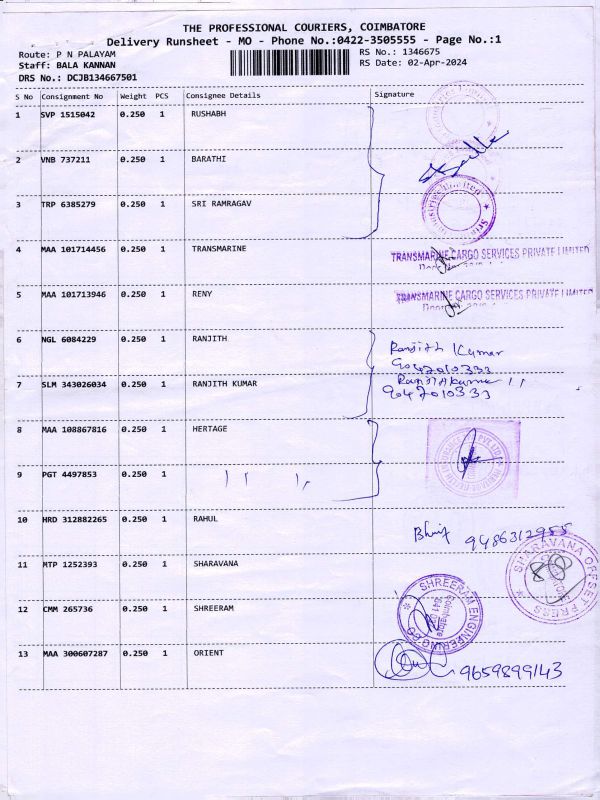 THE PROFESSIONAL COURIERS, COIMBATORE
Delivery Runsheet - MO - Phone No.:0422-3505555 - Page No.:1
Route: P N PALAYAM
Staff: BALA KANNAN
DRS No.: DCJB134667501
RS No.: 1346675
RS Date: 02-Apr-2024
S No Consignment No Weight PCS Consignee Details Signature
1 SVP 1515042 0.250 1 RUSHABH
2 VNB 737211 0.250 1 BARATHI
3 TRP 6385279 0.250 1 SRI RAMRAGAV
4 MAA 101714456 0.250 1 TRANSMARINE TRANSMARINE CARGO SERVICES PRIVATE LIMITED
5 MAA 101713946 0.250 1 RENY TRANSMARINE CARGO SERVICES PRIVATE LIMITED
6 NGL 6084229 0.250 1 RANJITH Ranjith Kumar
9042010333
7 SLM 343026034 0.250 1 RANJITH KUMAR
9042010333
8 MAA 108867816 0.250 1 HERTAGE
9 PGT 4497853 0.250 1
10 HRD 312882265 0.250 1 RAHUL 9486312955
11 MTP 1252393 0.250 1 SHARAVANA SHARAVANA OFFSET PRESS
12 CMM 265736 0.250 1 SHREERAM SHREERAM ENGINEERING CO
Coimbatore
13 MAA 300607287 0.250 1 ORIENT 9659899143